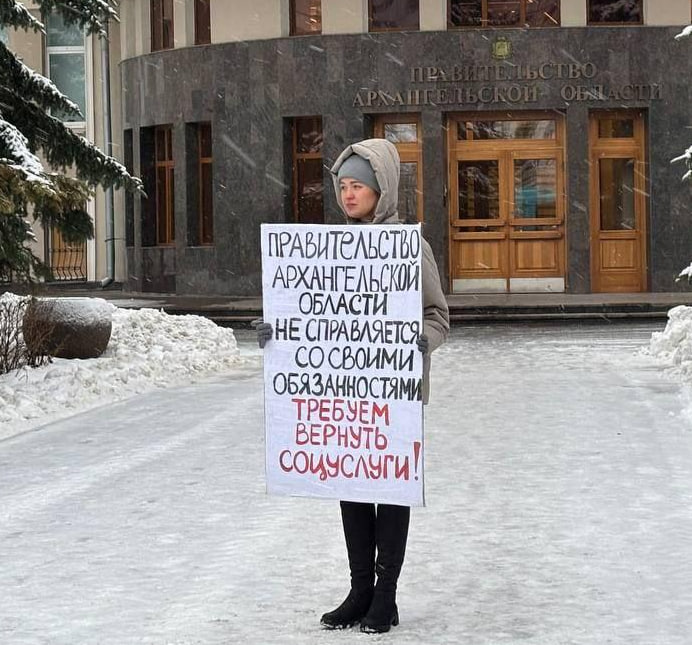 ПРАВИТЕЛЬСТВО
АРХАНГЕЛЬСКОЙ ОБЛАСТИ
ПРАВИТЕЛЬСТВО
АРХАНГЕЛЬСКОЙ
ОБЛАСТИ
НЕ СПРАВЛЯЕТСЯ
СО СВОИМИ
ОБЯЗАННОСТЯМИ
ТРЕБУЕМ
ВЕРНУТЬ
СОЦУСЛУГИ!